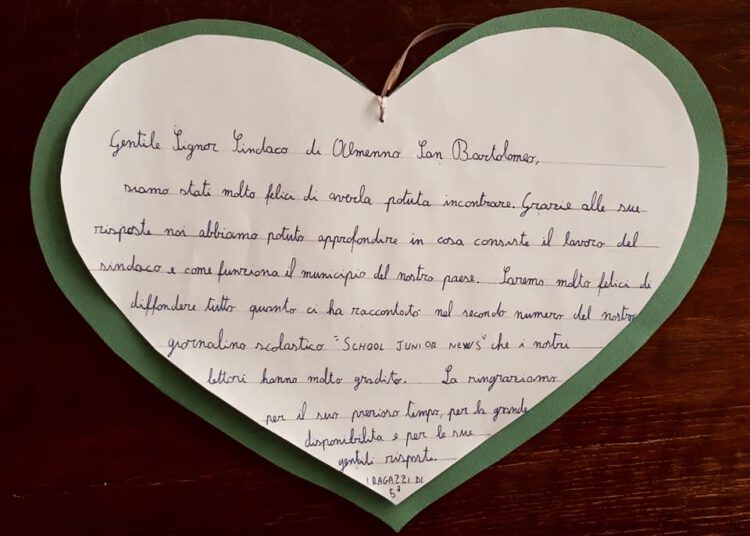 Gentile Signor Sindaco di Almenno San Bartolomeo,
siamo stati molto felici di averla potuta incontrare. Grazie alle sue
risposte noi abbiamo potuto approfondire in cosa consiste il lavoro del
sindaco e come funziona il municipio del nostro paese. Saremo molto felici di
diffondere tutto quanto ci ha raccontato nel secondo numero del nostro
giornalino scolastico "SCHOOL JUNIOR NEWS" che i nostri
lettori hanno molto gradito. La ringraziamo
per il suo prezioso tempo, per la grande
disponibilità e per le sue
gentili risposte.
I RAGAZZI DI
5ª